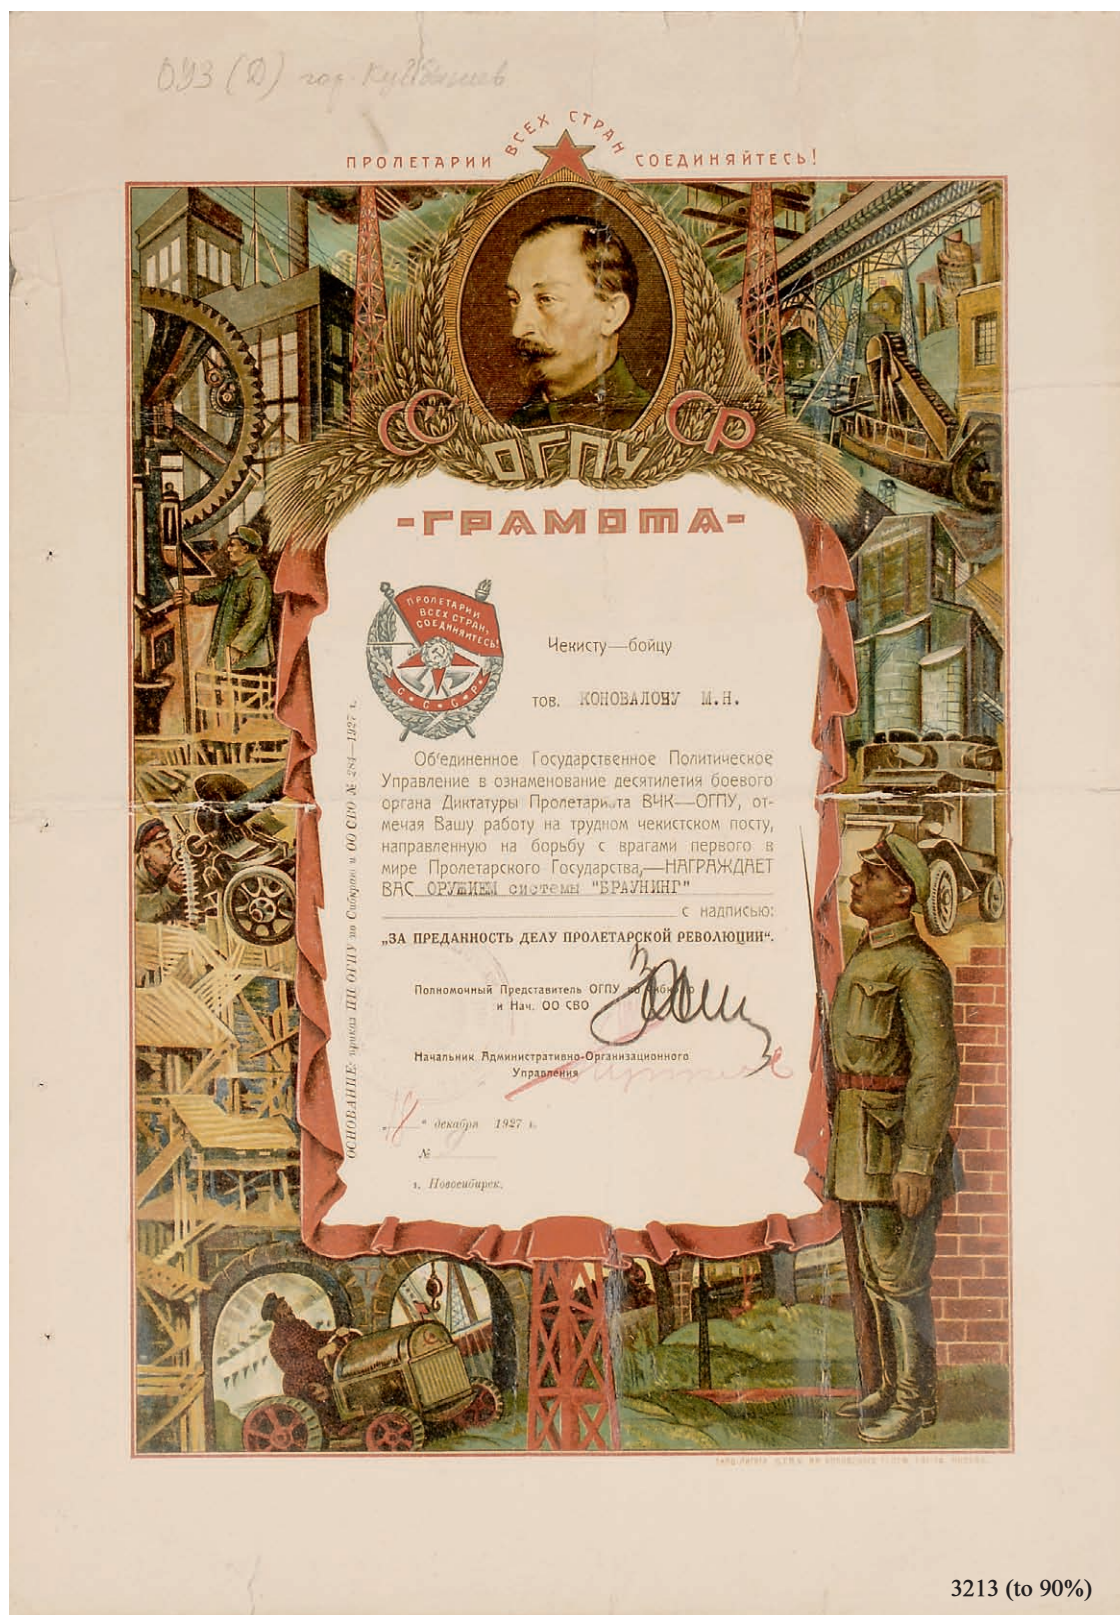 ОУЗ (Д) гор. Куйбышев
ПРОЛЕТАРИИ ВСЕХ СТРАН СОЕДИНЯЙТЕСЬ!
СССР
ОГПУ
-ГРАМОТА-
ПРОЛЕТАРИИ
ВСЕХ СТРАН,
СОЕДИНЯЙТЕСЬ!
С·С·С·Р
Чекисту—бойцу
тов. КОНОВАЛОВУ М.Н.
Об'единенное Государственное Политическое
Управление в ознаменование десятилетия боевого
органа Диктатуры Пролетариата ВЧК—ОГПУ, от-
мечая Вашу работу на трудном чекистском посту,
направленную на борьбу с врагами первого в
мире Пролетарского Государства,—НАГРАЖДАЕТ
ВАС ОРУЖИЕМ системы "БРАУНИНГ"
с надписью:
„ЗА ПРЕДАННОСТЬ ДЕЛУ ПРОЛЕТАРСКОЙ РЕВОЛЮЦИИ".
Полномочный Представитель ОГПУ по Сибкраю
и Нач. ОО СВО
Начальник Административно-Организационного
Управления
„18" декабря 1927 г.
№
г. Новосибирск.
ОСНОВАНИЕ: приказ ПП ОГПУ по Сибкраю и ОО СВО № 284—1927 г.
3213 (to 90%)